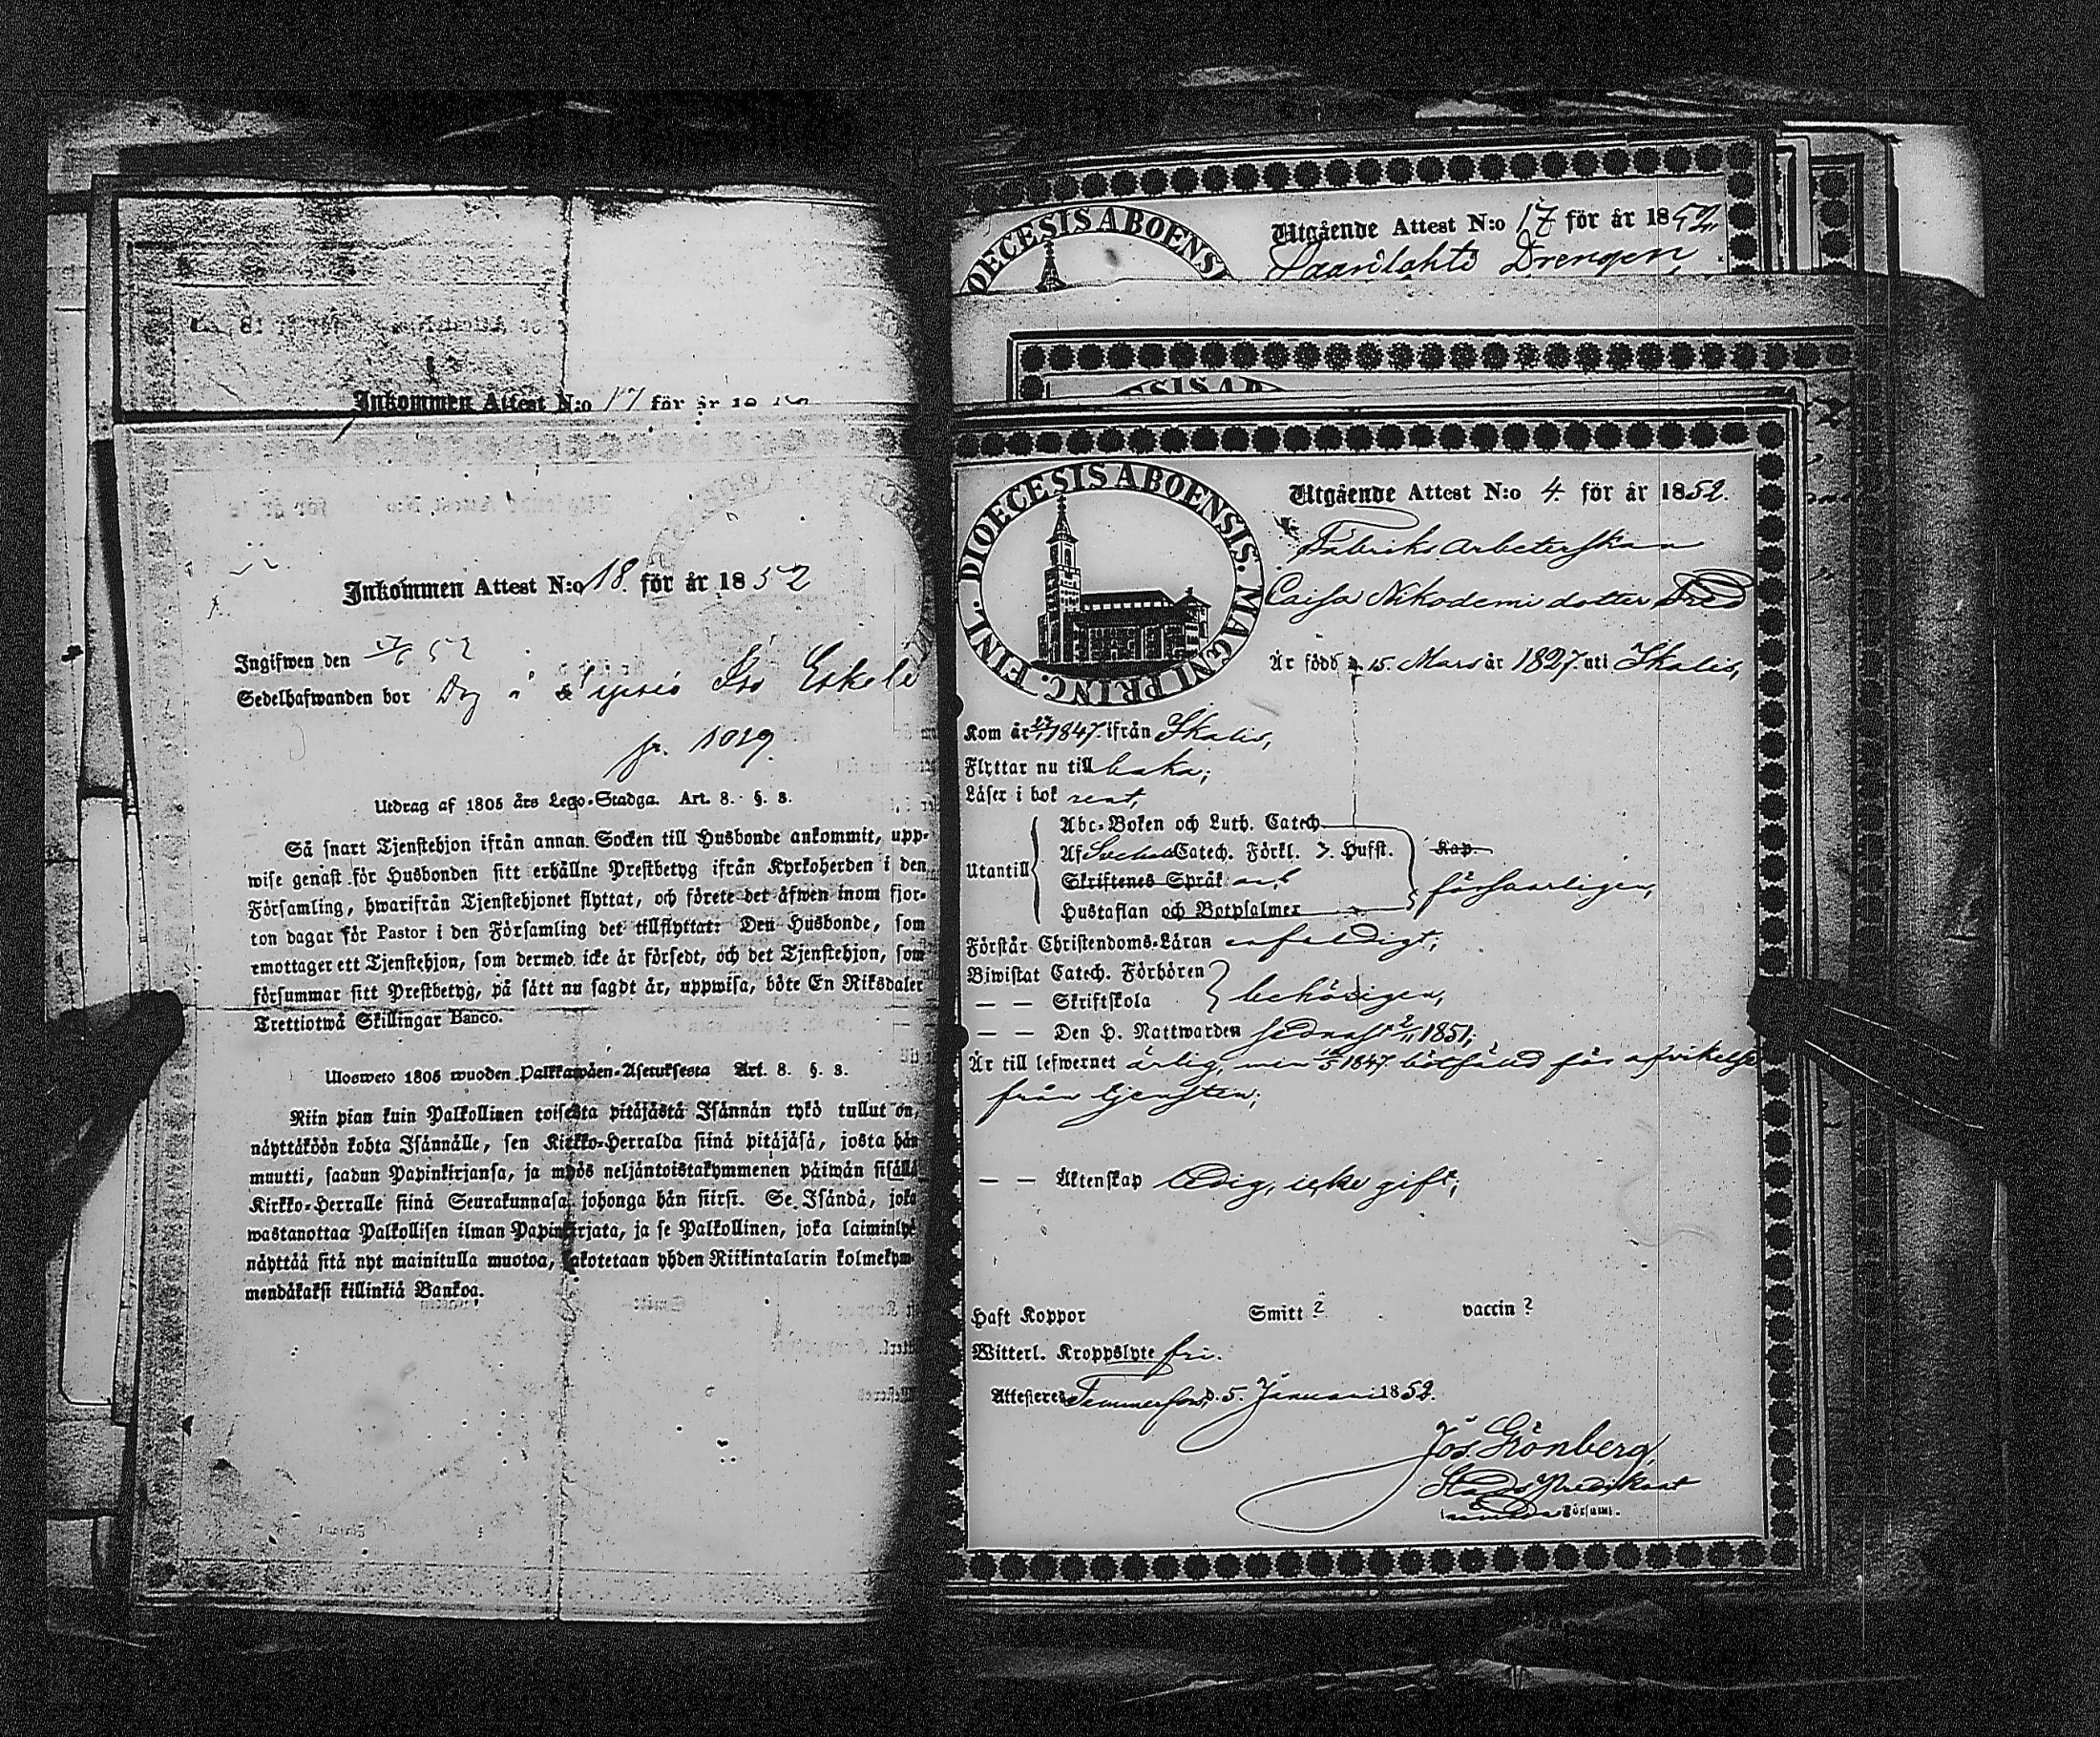 Inkommen Attest N:o 17 för år 18
Inkommen Attest N:o 18. för år 1852
Ingifwen den 52
Sedelhafwanden bor
Utdrag af 1805 års Lego-Stadga. Art. 8. §. 8.
Så snart Tjenstehjon ifrån annan Socken till Husbonde ankommit, upp-
wise genast för Husbonden sitt erhållne Prestbetyg ifrån Kyrkoherden i den
Församling, hwarifrån Tjenstehjonet flyttat, och förete det äfwen inom fjor-
ton dagar för Pastor i den Församling det tillflyttat: Den Husbonde, som
emottager ett Tjenstehjon, som dermed icke är försedt, och det Tjenstehjon, som
försummar sitt Prestbetyg, på sätt nu sagdt är, uppwisa, böte En Riksdaler
Trettiotwå Skillingar Banco.
Ulosweto 1805 wuoden Palkkawäen-Asetuksesta Art. 8. §. 8.
Niin pian kuin Palkollinen toisesta pitäjästä Isännän tykö tullut on,
näyttäköön kohta Isännälle, sen Kirkko-Herralda siinä pitäjäsä, josta hän
muutti, saadun Papinkirjansa, ja myös neljäntoistakymmenen päiwän sisällä
Kirkko-Herralle siinä Seurakunnasa johonga hän siirsi. Se Isändä, joka
wastanottaa Palkollisen ilman Papinkirjata, ja se Palkollinen, joka laiminlyö
näyttää sitä nyt mainitulla muotoa, sakotetaan yhden Riikintalarin kolmekym-
mendäkaksi killinkiä Bankoa.
DIOECESIS ABOENSIS
Utgående Attest N:o 17 för år 1852.
Drengen
DIOECESIS ABOENSIS. MAGNI PRINC. FINL.
Utgående Attest N:o 4 för år 1852.
Fabriks Arbeterskan
Caisa Nikodemi dotter
Är född d. 15. Mars år 1827. uti Ikalis,
Kom år 1847. ifrån Ikalis,
Flyttar nu till baka;
Läser i bok rent,
Utantill
Abc-Boken och Luth. Catech.
Af Svebel. Catech. Förkl. Husst. Kap.
Skriftenes Språk
Hustaflan och Botpsalmer
försvarligen,
Förstår Christendoms-Läran enfaldigt;
Biwistat Catech. Förhören
— — Skriftskola
behörigen,
— — Den H. Nattwarden sednast 2/11 1851;
Är till lefwernet ärlig, men 1847. bötfäld för afvikelse
från tjensten;
— — Äktenskap ledig, icke gift;
Haft Koppor Smitt? vaccin?
Witterl. Kroppslyte fri.
Attesteres Tammerfors d. 5. Januari 1852.
Jos. Grönberg,
Stads Predikant
Församl.